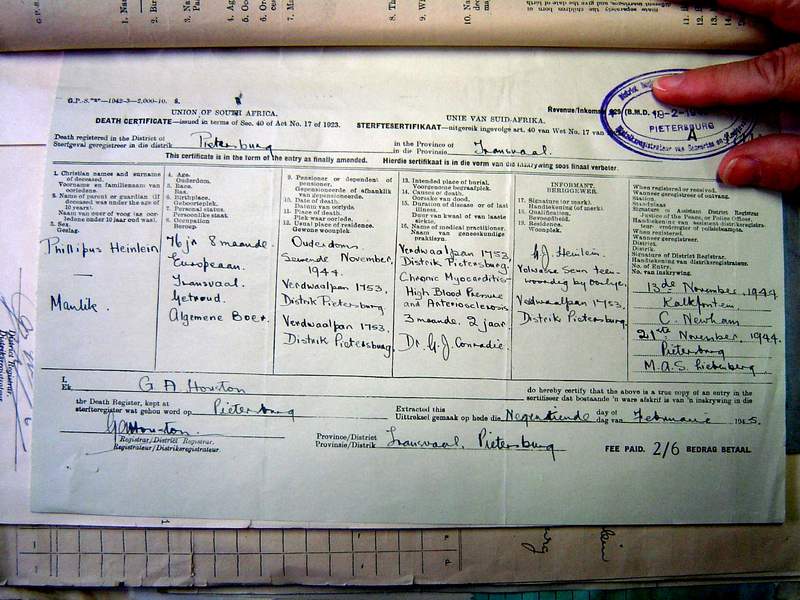 G.P.-S. 1942-3—2,000-10. S.
UNION OF SOUTH AFRICA.
UNIE VAN SUID-AFRIKA.
Revenue/Inkomste
(B.M.D.
DEATH CERTIFICATE—issued in terms of Sec. 40 of Act No. 17 of 1923.
STERFTESERTIFIKAAT—uitgereik ingevolge art. 40 van Wet No. 17 van
PIETERSBURG
A
Death registered in the District of
Sterfgeval geregistreer in die distrik
Pietersburg
in the Province of
in die Provinsie
Transvaal.
This certificate is in the form of the entry as finally amended.
Hierdie sertifikaat is in die vorm van die inskrywing soos finaal verbeter.
1. Christian names and surname of deceased.
Voorname en familienaam van oorledene.
2. Name of parent or guardian (if deceased was under the age of 10 years).
Naam van ouer of voog (as oorledene onder 10 jaar oud was).
3. Sex.
Geslag.
Phillipus Heinlein
—
Manlik.
4. Age.
Ouderdom.
5. Race.
Ras.
6. Birthplace.
Geboorteplek.
7. Personal status.
Persoonlike staat.
8. Occupation
Beroep.
76 jr 8 maande.
Europeaan.
Transvaal.
Getroud.
Algemene Boer.
9. Pensioner or dependent of pensioner.
Gepensioneerde of afhanklik van gepensioneerde.
10. Date of death.
Datum van oorlyde.
11. Place of death.
Plek waar oorlede.
12. Usual place of residence.
Gewone woonplek.
Ouderdoms.
Sewende November,
1944.
Verdwaalpan 1753.
Distrik Pietersburg
Verdwaalpan 1753.
Distrik Pietersburg
13. Intended place of burial.
Voorgenome begraafplek.
14. Causes of death.
Oorsake van dood.
15. Duration of disease or of last illness.
Duur van kwaal of van laaste siekte.
16. Name of medical practitioner.
Naam van geneeskundige praktisyn.
Verdwaalpan 1753.
Distrik Pietersburg.
Chronic Myocarditis
High Blood Pressure
and Arteriosclerosis
3 maande. 2 jaar.
Dr. G.J. Conradie.
INFORMANT.
BERIGGEWER.
17. Signature (or mark).
Handtekening (of merk).
18. Qualification.
Bevoegdheid.
19. Residence.
Woonplek.
G.J. Heinlein.
Volwasse Seun teen-
woordig by oorlye.
Verdwaalpan 1753.
Distrik Pietersburg.
When registered or received.
Wanneer geregistreer of ontvang.
Station.
Standplaas.
Signature of Assistant District Registrar
Justice of the Peace, or Police Officer.
Handtekening van assistent-distriksregistrateur
When registered.
Wanneer geregistreer.
District.
Distrik.
Signature of District Registrar.
Handtekening van distriksregistrateur.
No. of Entry.
No. van inskrywing.
13de November, 1944
Kalkfontein.
C. Newham
21ste November, 1944.
Pietersburg
I,
Ek
G. A. Houston
do hereby certify that the above is a true copy of an entry in the
sertifiseer dat bostaande 'n ware afskrif is van 'n inskrywing in die
the Death Register, kept at
sterfteregister wat gehou word op
Pietersburg
Extracted this
Uittreksel gemaak op hede die
Negentiende
day of
dag van
Februarie
19
G.A. Houston.
Registrar/District Registrar.
Registrateur/Distriksregistrateur
Province/District
Provinsie/Distrik
Transvaal, Pietersburg
FEE PAID. 2/6 BEDRAG BETAAL.